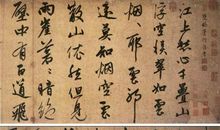 江上愁心千疊山
浮空積翠如雲
烟山耶雲耶
遠莫知烟空雲
散山依然但見
兩崖蒼々暗絕
谷中有百道飛